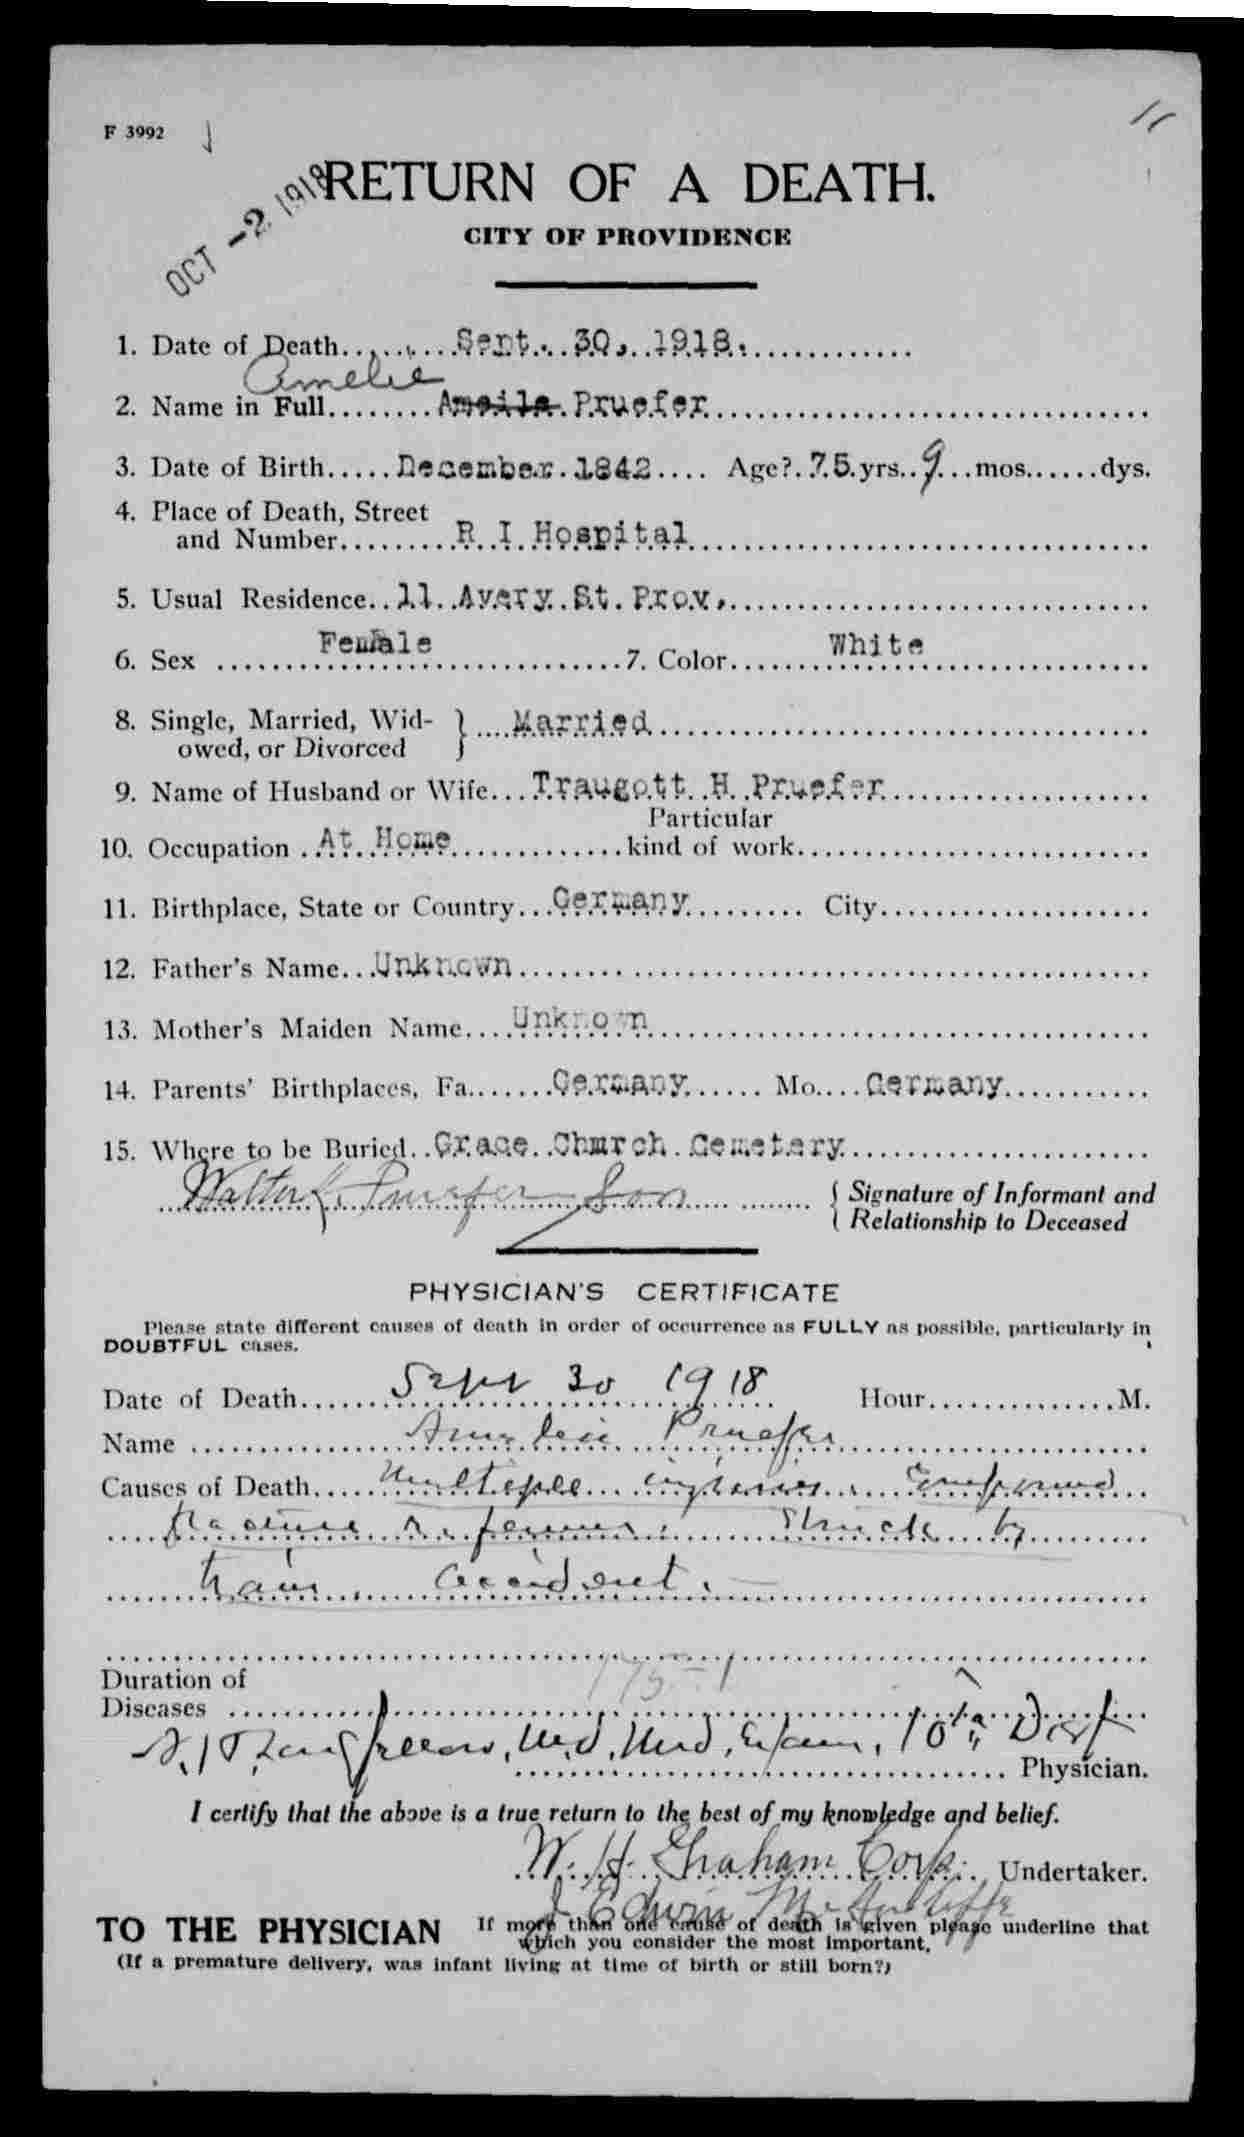 F 3992
OCT -2 1918
RETURN OF A DEATH.
CITY OF PROVIDENCE
1. Date of Death Sept. 30, 1918.
Amelie
2. Name in Full Ameila Pruefer
3. Date of Birth December 1842 Age? 75 yrs. 9 mos. dys.
4. Place of Death, Street
and Number R I Hospital
5. Usual Residence 11 Avery St. Prov.
6. Sex Female 7. Color White
8. Single, Married, Wid-
owed, or Divorced } Married
9. Name of Husband or Wife Traugott H Pruefer
10. Occupation At Home Particular
kind of work
11. Birthplace, State or Country Germany City
12. Father's Name Unknown
13. Mother's Maiden Name Unknown
14. Parents' Birthplaces, Fa. Germany Mo. Germany
15. Where to be Buried Grace Church Cemetery
Walter Pruefer Son { Signature of Informant and
Relationship to Deceased
PHYSICIAN'S CERTIFICATE
Please state different causes of death in order of occurrence as FULLY as possible, particularly in
DOUBTFUL cases.
Date of Death Sept 30 1918 Hour M.
Name Amelie Pruefer
Causes of Death Multiple injuries. Compound
fracture R. femur. Struck by
train. Accident.
175-1
Duration of
Diseases
M.D., Med. Exam., 10th Dist
Physician.
I certify that the above is a true return to the best of my knowledge and belief.
W. H. Graham Corp. Undertaker.
J Edwin
TO THE PHYSICIAN If more than one cause of death is given please underline that
which you consider the most important.
(If a premature delivery, was infant living at time of birth or still born?)